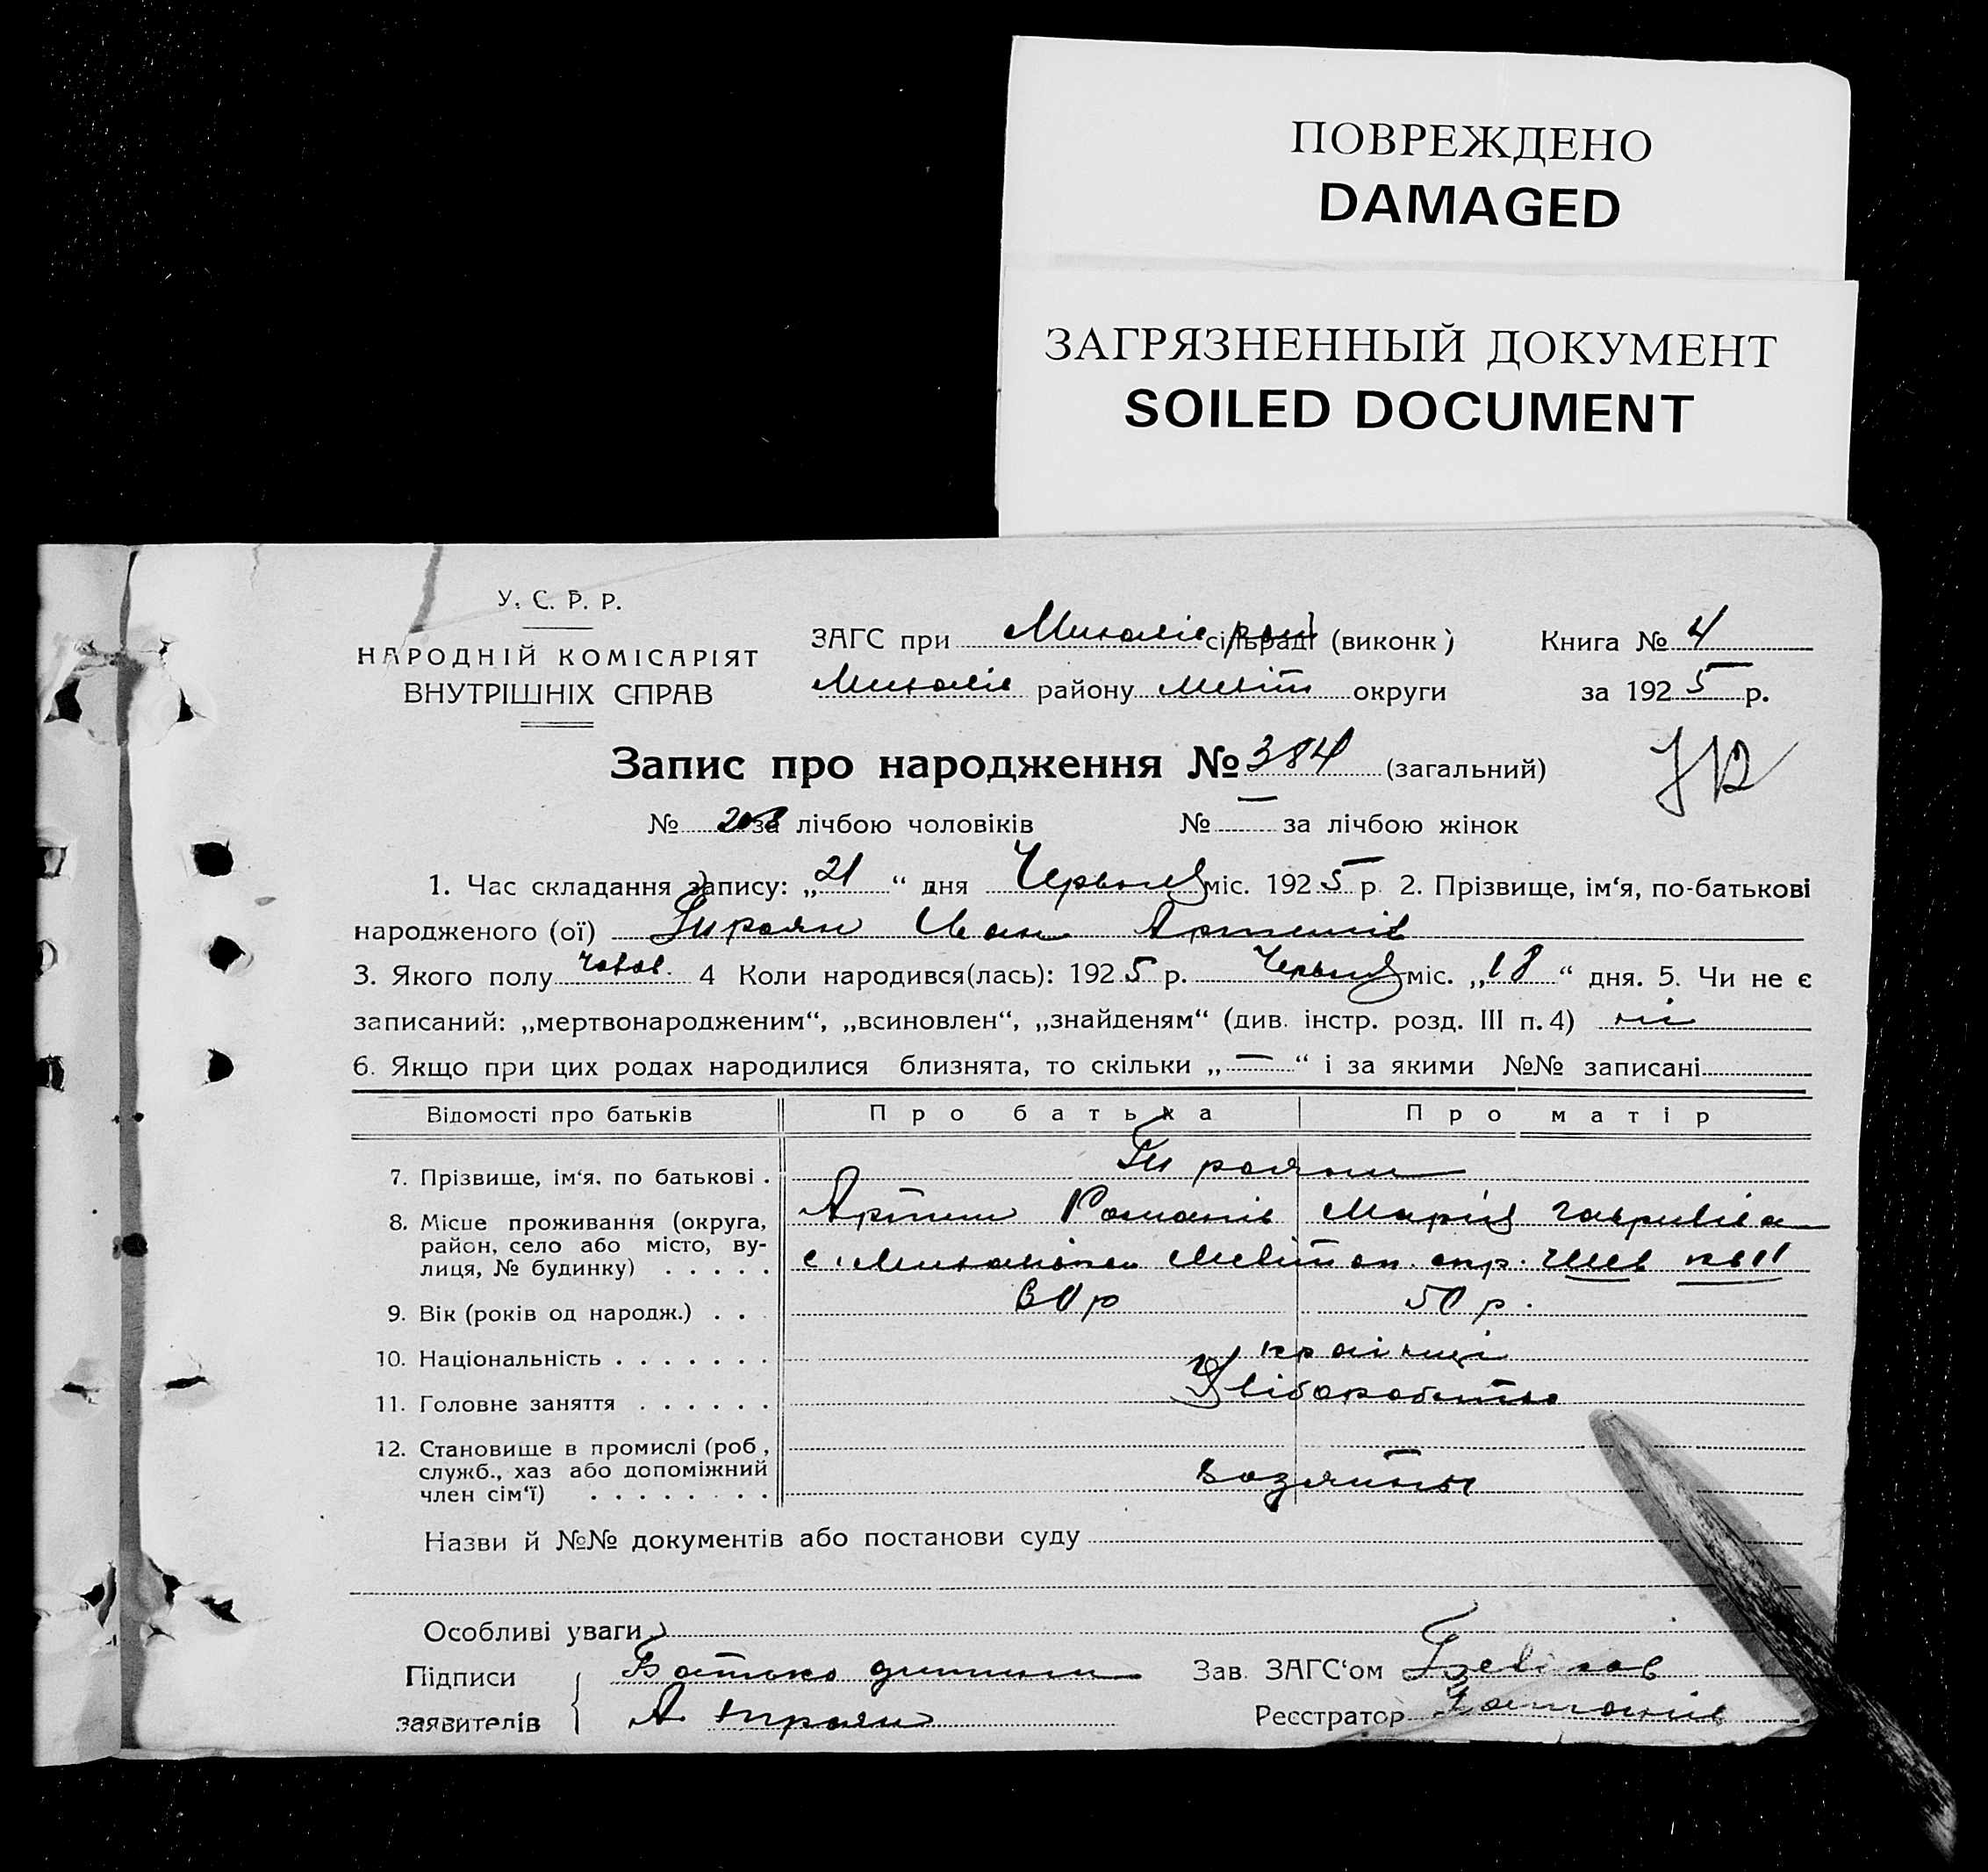 ПОВРЕЖДЕНО
DAMAGED
ЗАГРЯЗНЕННЫЙ ДОКУМЕНТ
SOILED DOCUMENT
У. С. Р. Р.
НАРОДНІЙ КОМІСАРІЯТ
ВНУТРІШНІХ СПРАВ
ЗАГС при сільраді (виконк) Книга № 4
району Меліт округи за 1925 р.
Запис про народження № 384 (загальний)
№ за лічбою чоловіків № — за лічбою жінок
1. Час складання запису: „21“ дня Червня міс. 1925 р. 2. Прізвище, ім‘я, по-батькові
народженого (ої) Іван Артемів
3. Якого полу чолов. 4 Коли народився(лась): 1925 р. Червня міс. „18“ дня. 5. Чи не є
записаний: „мертвонародженим“, „всиновлен“, „знайденям“ (див. інстр. розд. III п. 4) ні
6. Якщо при цих родах народилися близнята, то скільки „—“ і за якими №№ записані
Відомості про батьків Про батька Про матір
7. Прізвище, ім‘я. по батькові .
8. Місце проживання (округа, Артем Романів Марія Гаврилівна
район, село або місто, ву-
лиця, № будинку) . . . . . с. Меліт ок.
9. Вік (років од народж.) . . 50 р.
10. Національність . . . . . . . країнці
11. Головне заняття . . . . . . хліборобство
12. Становище в промислі (роб,
служб., хаз або допоміжний
член сім‘ї) . . . . . . . . хазяіны
Назви й №№ документів або постанови суду
Особливі уваги
Підписи Батько дитини Зав. ЗАГС‘ом
заявителів А. Реєстратор